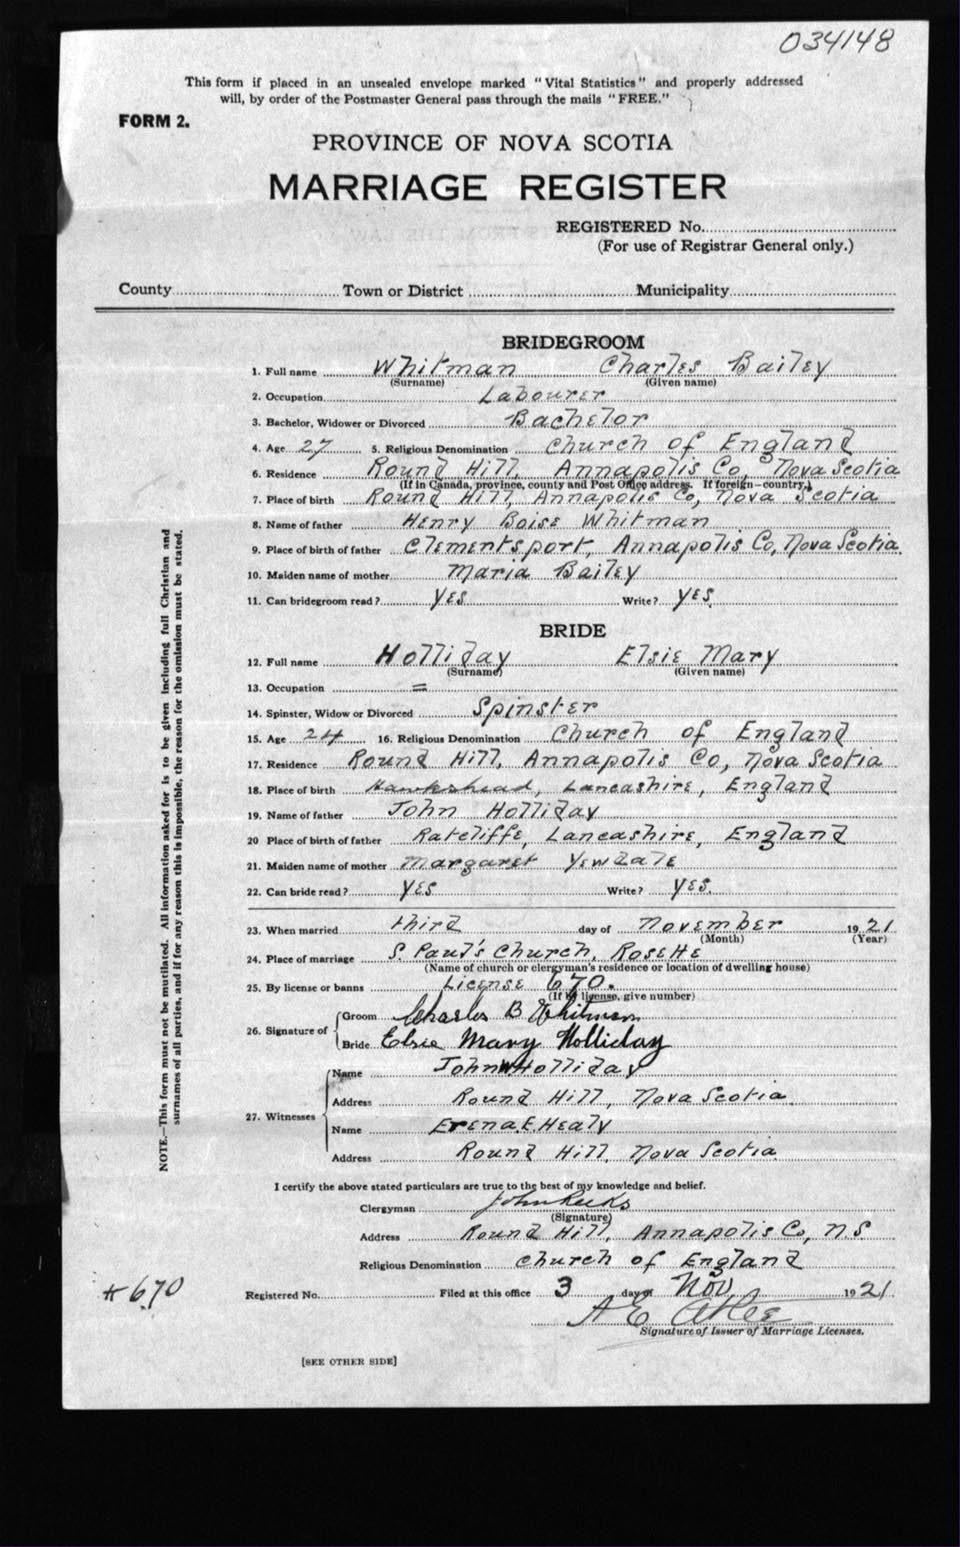 034148
This form if placed in an unsealed envelope marked "Vital Statistics" and properly addressed
will, by order of the Postmaster General pass through the mails "FREE."
FORM 2.
PROVINCE OF NOVA SCOTIA
MARRIAGE REGISTER
REGISTERED No.
(For use of Registrar General only.)
County Town or District Municipality
BRIDEGROOM
1. Full name Whitman Charles Bailey
(Surname) (Given name)
2. Occupation Labourer
3. Bachelor, Widower or Divorced Bachelor
4. Age 27 5. Religious Denomination Church of England
6. Residence Round Hill, Annapolis Co, Nova Scotia
(If in Canada, province, county and Post Office address. If foreign—country.)
7. Place of birth Round Hill, Annapolis Co, Nova Scotia
8. Name of father Henry Boise Whitman
9. Place of birth of father Clementsport, Annapolis Co, Nova Scotia.
10. Maiden name of mother Maria Bailey
11. Can bridegroom read? Yes Write? Yes.
BRIDE
12. Full name Holliday Elsie Mary
(Surname) (Given name)
13. Occupation =
14. Spinster, Widow or Divorced Spinster
15. Age 24 16. Religious Denomination Church of England
17. Residence Round Hill, Annapolis Co, Nova Scotia
18. Place of birth Hawkshead, Lancashire, England
19. Name of father John Holliday
20 Place of birth of father Ratcliffe, Lancashire, England
21. Maiden name of mother Margaret Yewdale
22. Can bride read? Yes Write? Yes.
23. When married third day of November 1921
(Month) (Year)
24. Place of marriage S. Paul's Church, Rosette
(Name of church or clergyman's residence or location of dwelling house)
25. By license or banns License 670.
(If by license, give number)
26. Signature of Groom Charles B Whitman
Bride Elsie Mary Holliday
27. Witnesses Name John Holliday
Address Round Hill, Nova Scotia.
Name Erena. E. Healy
Address Round Hill, Nova Scotia
I certify the above stated particulars are true to the best of my knowledge and belief.
Clergyman John Reeks
(Signature)
Address Round Hill, Annapolis Co, N.S.
Religious Denomination Church of England
#670
Registered No. Filed at this office 3 day of Nov 1921
A E
Signature of Issuer of Marriage Licenses.
[SEE OTHER SIDE]
NOTE.—This form must not be mutilated. All information asked for is to be given including full Christian and
surnames of all parties, and if for any reason this is impossible, the reason for the omission must be stated.